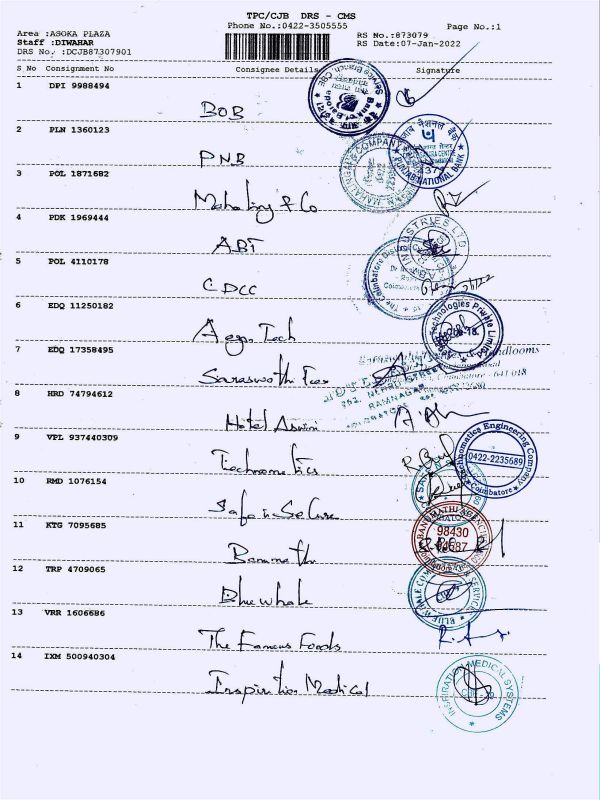 TPC/CJB DRS - CMS
Phone No.:0422-3505555
Page No.:1
Area :ASOKA PLAZA
Staff :DIWAHAR
DRS No. :DCJB87307901
RS No.:873079
RS Date:07-Jan-2022
S No Consignment No Consignee Details Signature
1 DPI 9988494
BOB
2 PLN 1360123
PNB
पंजाब नैशनल बैंक
PUNJAB NATIONAL BANK
3 POL 1871682
Mahaling & Co
4 PDK 1969444
ABT
INDUSTRIES LTD
5 POL 4110178
CDCC
The Coimbatore
6 EDQ 11250182
Aego Tech
Technologies Private Limited
7 EDQ 17358495
Saraswathi Tex
Handlooms
Coimbatore - 641 018
352, NEHRU STREET
RAMNAGAR
8 HRD 74794612
Hotel Aswini
9 VPL 937440309
Technomatics
Technomatics Engineering Company
0422-2235689
Coimbatore
10 RMD 1076154
Safe n Secure
11 KTG 7095685
Banumathi
BANUMATHI AGENCIES
98430
12 TRP 4709065
Blue whale
BLUE WHALE
13 VRR 1606686
The Famous Foods
14 IXM 500940304
Inspiration Medical
INSPIRATION MEDICAL SYSTEMS